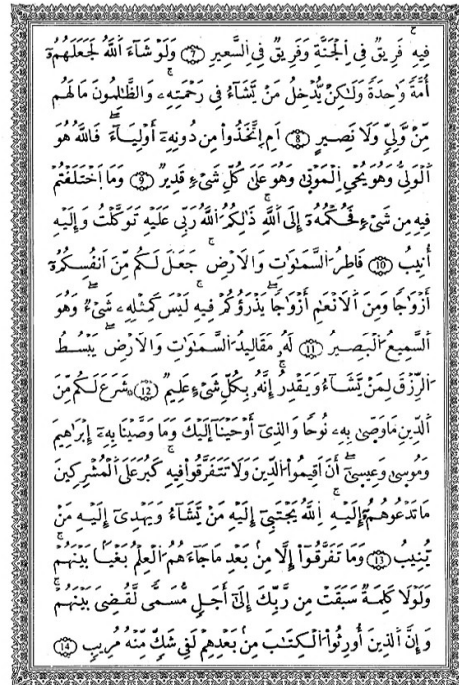 فِيهِ فَرِيقٌ فِي اِ۬لْجَنَّةِ وَفَرِيقٌ فِي اِ۬لسَّعِيرِ ٧ وَلَوْ شَآءَ اَ۬للَّهُ لَجَعَلَهُمُۥ
أُمَّةً وَٰحِدَةً وَلَٰكِنْ يُّدْخِلُ مَنْ يَّشَآءُ فِي رَحْمَتِهِۦ وَالظَّٰلِمُونَ مَا لَهُم
مِّنْ وَّلِيٍّ وَلَا نَصِيرٍ ٨ اَمِ اِ۪تَّخَذُواْ مِن دُونِهِۦٓ أَوْلِيَآءَ فَاللَّهُ هُوَ
اَ۬لْوَلِيُّ وَهُوَ يُحْيِ اِ۬لْمَوْتَىٰ وَهُوَ عَلَىٰ كُلِّ شَےْءٍ قَدِيرٌ ٩ وَمَا اَ۪خْتَلَفْتُمْ
فِيهِ مِن شَےْءٍ فَحُكْمُهُۥٓ إِلَى اَ۬للَّهِ ذَٰلِكُمُ اُ۬للَّهُ رَبِّي عَلَيْهِ تَوَكَّلْتُ وَإِلَيْهِ
أُنِيبُ ١٠ فَاطِرُ اُ۬لسَّمَٰوَٰتِ وَالَارْضِ جَعَلَ لَكُم مِّنَ اَنفُسِكُمُۥٓ
أَزْوَٰجًا وَمِنَ اَ۬لَانْعَٰمِ أَزْوَٰجًا يَذْرَؤُكُمْ فِيهِ لَيْسَ كَمِثْلِهِۦ شَےْءٌ وَهُوَ
اَ۬لسَّمِيعُ اُ۬لْبَصِيرُ ١١ لَهُۥ مَقَالِيدُ اُ۬لسَّمَٰوَٰتِ وَالَارْضِ يَبْسُطُ
اُ۬لرِّزْقَ لِمَنْ يَّشَآءُ وَيَقْدِرُ إِنَّهُۥ بِكُلِّ شَےْءٍ عَلِيمٌ ١٢ شَرَعَ لَكُم مِّنَ
اَ۬لدِّينِ مَا وَصَّىٰ بِهِۦ نُوحًا وَالَّذِيٓ أَوْحَيْنَآ إِلَيْكَ وَمَا وَصَّيْنَا بِهِۦٓ إِبْرَٰهِيمَ
وَمُوسَىٰ وَعِيسَىٰٓ أَنَ اَقِيمُواْ اُ۬لدِّينَ وَلَا تَتَفَرَّقُواْ فِيهِ كَبُرَ عَلَى اَ۬لْمُشْرِكِينَ
مَا تَدْعُوهُمُۥٓ إِلَيْهِ اِ۬للَّهُ يَجْتَبِيٓ إِلَيْهِ مَنْ يَّشَآءُ وَيَهْدِيٓ إِلَيْهِ مَنْ
يُّنِيبُ ١٣ وَمَا تَفَرَّقُوٓاْ إِلَّا مِنۢ بَعْدِ مَا جَآءَهُمُ اُ۬لْعِلْمُ بَغْيًۢا بَيْنَهُمْ
وَلَوْلَا كَلِمَةٌ سَبَقَتْ مِن رَّبِّكَ إِلَىٰٓ أَجَلٍ مُّسَمًّى لَّقُضِيَ بَيْنَهُمْ
وَإِنَّ اَ۬لَّذِينَ أُورِثُواْ اُ۬لْكِتَٰبَ مِنۢ بَعْدِهِمْ لَفِي شَكٍّ مِّنْهُ مُرِيبٍ ١٤